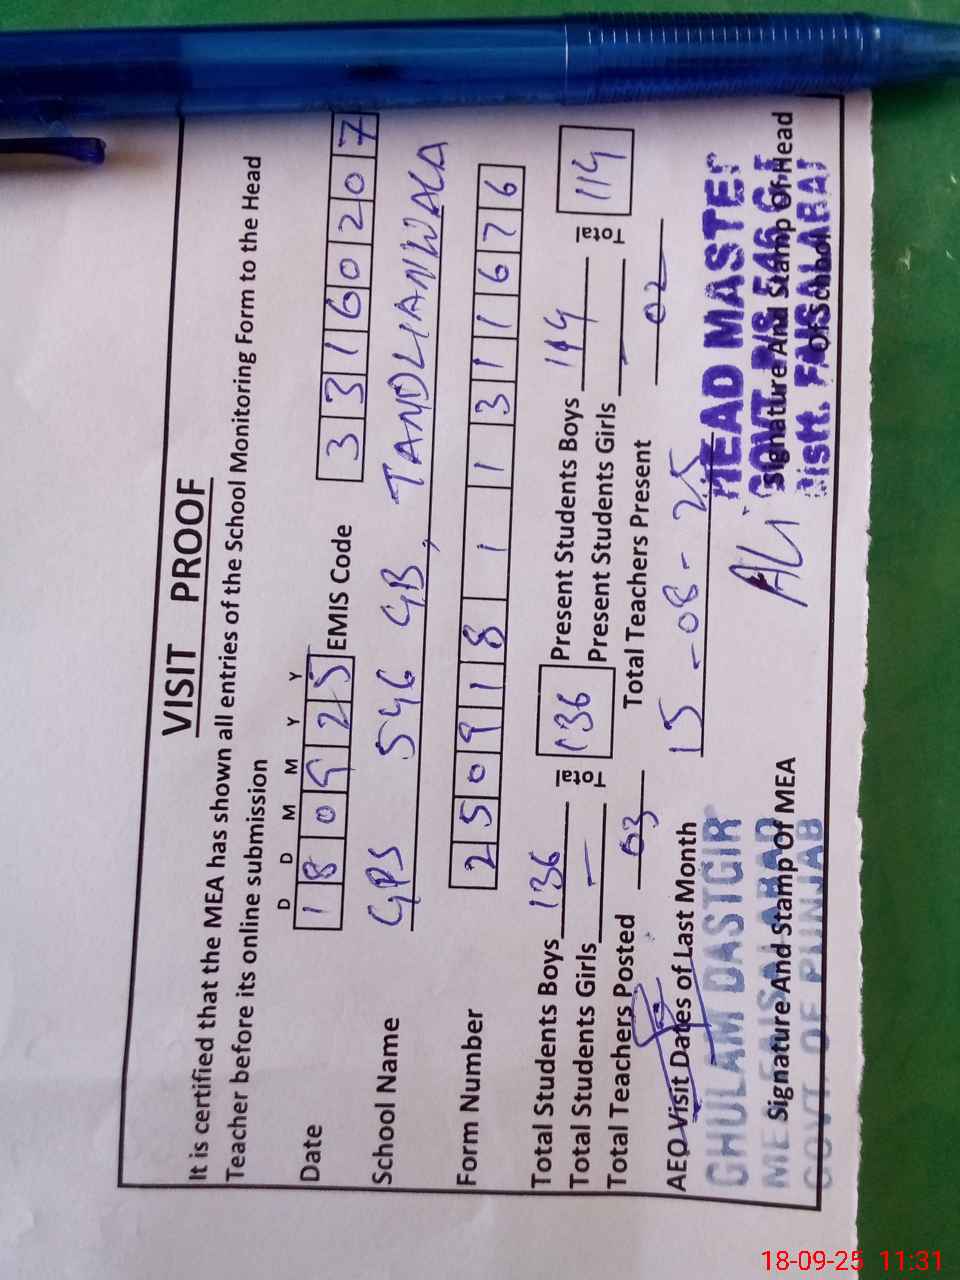 VISIT PROOF
It is certified that the MEA has shown all entries of the School Monitoring Form to the Head
Teacher before its online submission
D D M M Y Y
Date 1 8 0 9 2 5 EMIS Code 3 3 1 6 0 2 0 7
School Name GPS 546 GB, TANDLIANWALA
Form Number 2 5 0 9 1 8 1 1 3 1 1 6 7 6
Total Students Boys 136 Total 136 Present Students Boys 114 Total 114
Total Students Girls — Present Students Girls —
Total Teachers Posted 03 Total Teachers Present 02
AEO Visit Dates of Last Month 15-08-25
GHULAM DASTGIR HEAD MASTER
MEA FAISALABAD GOVT. P/S 546 G.
GOVT OF PUNJAB Distt. FAISALABAD
Signature And Stamp Of MEA Signature And Stamp Of Head
Of School
ALI
18-09-25 11:31